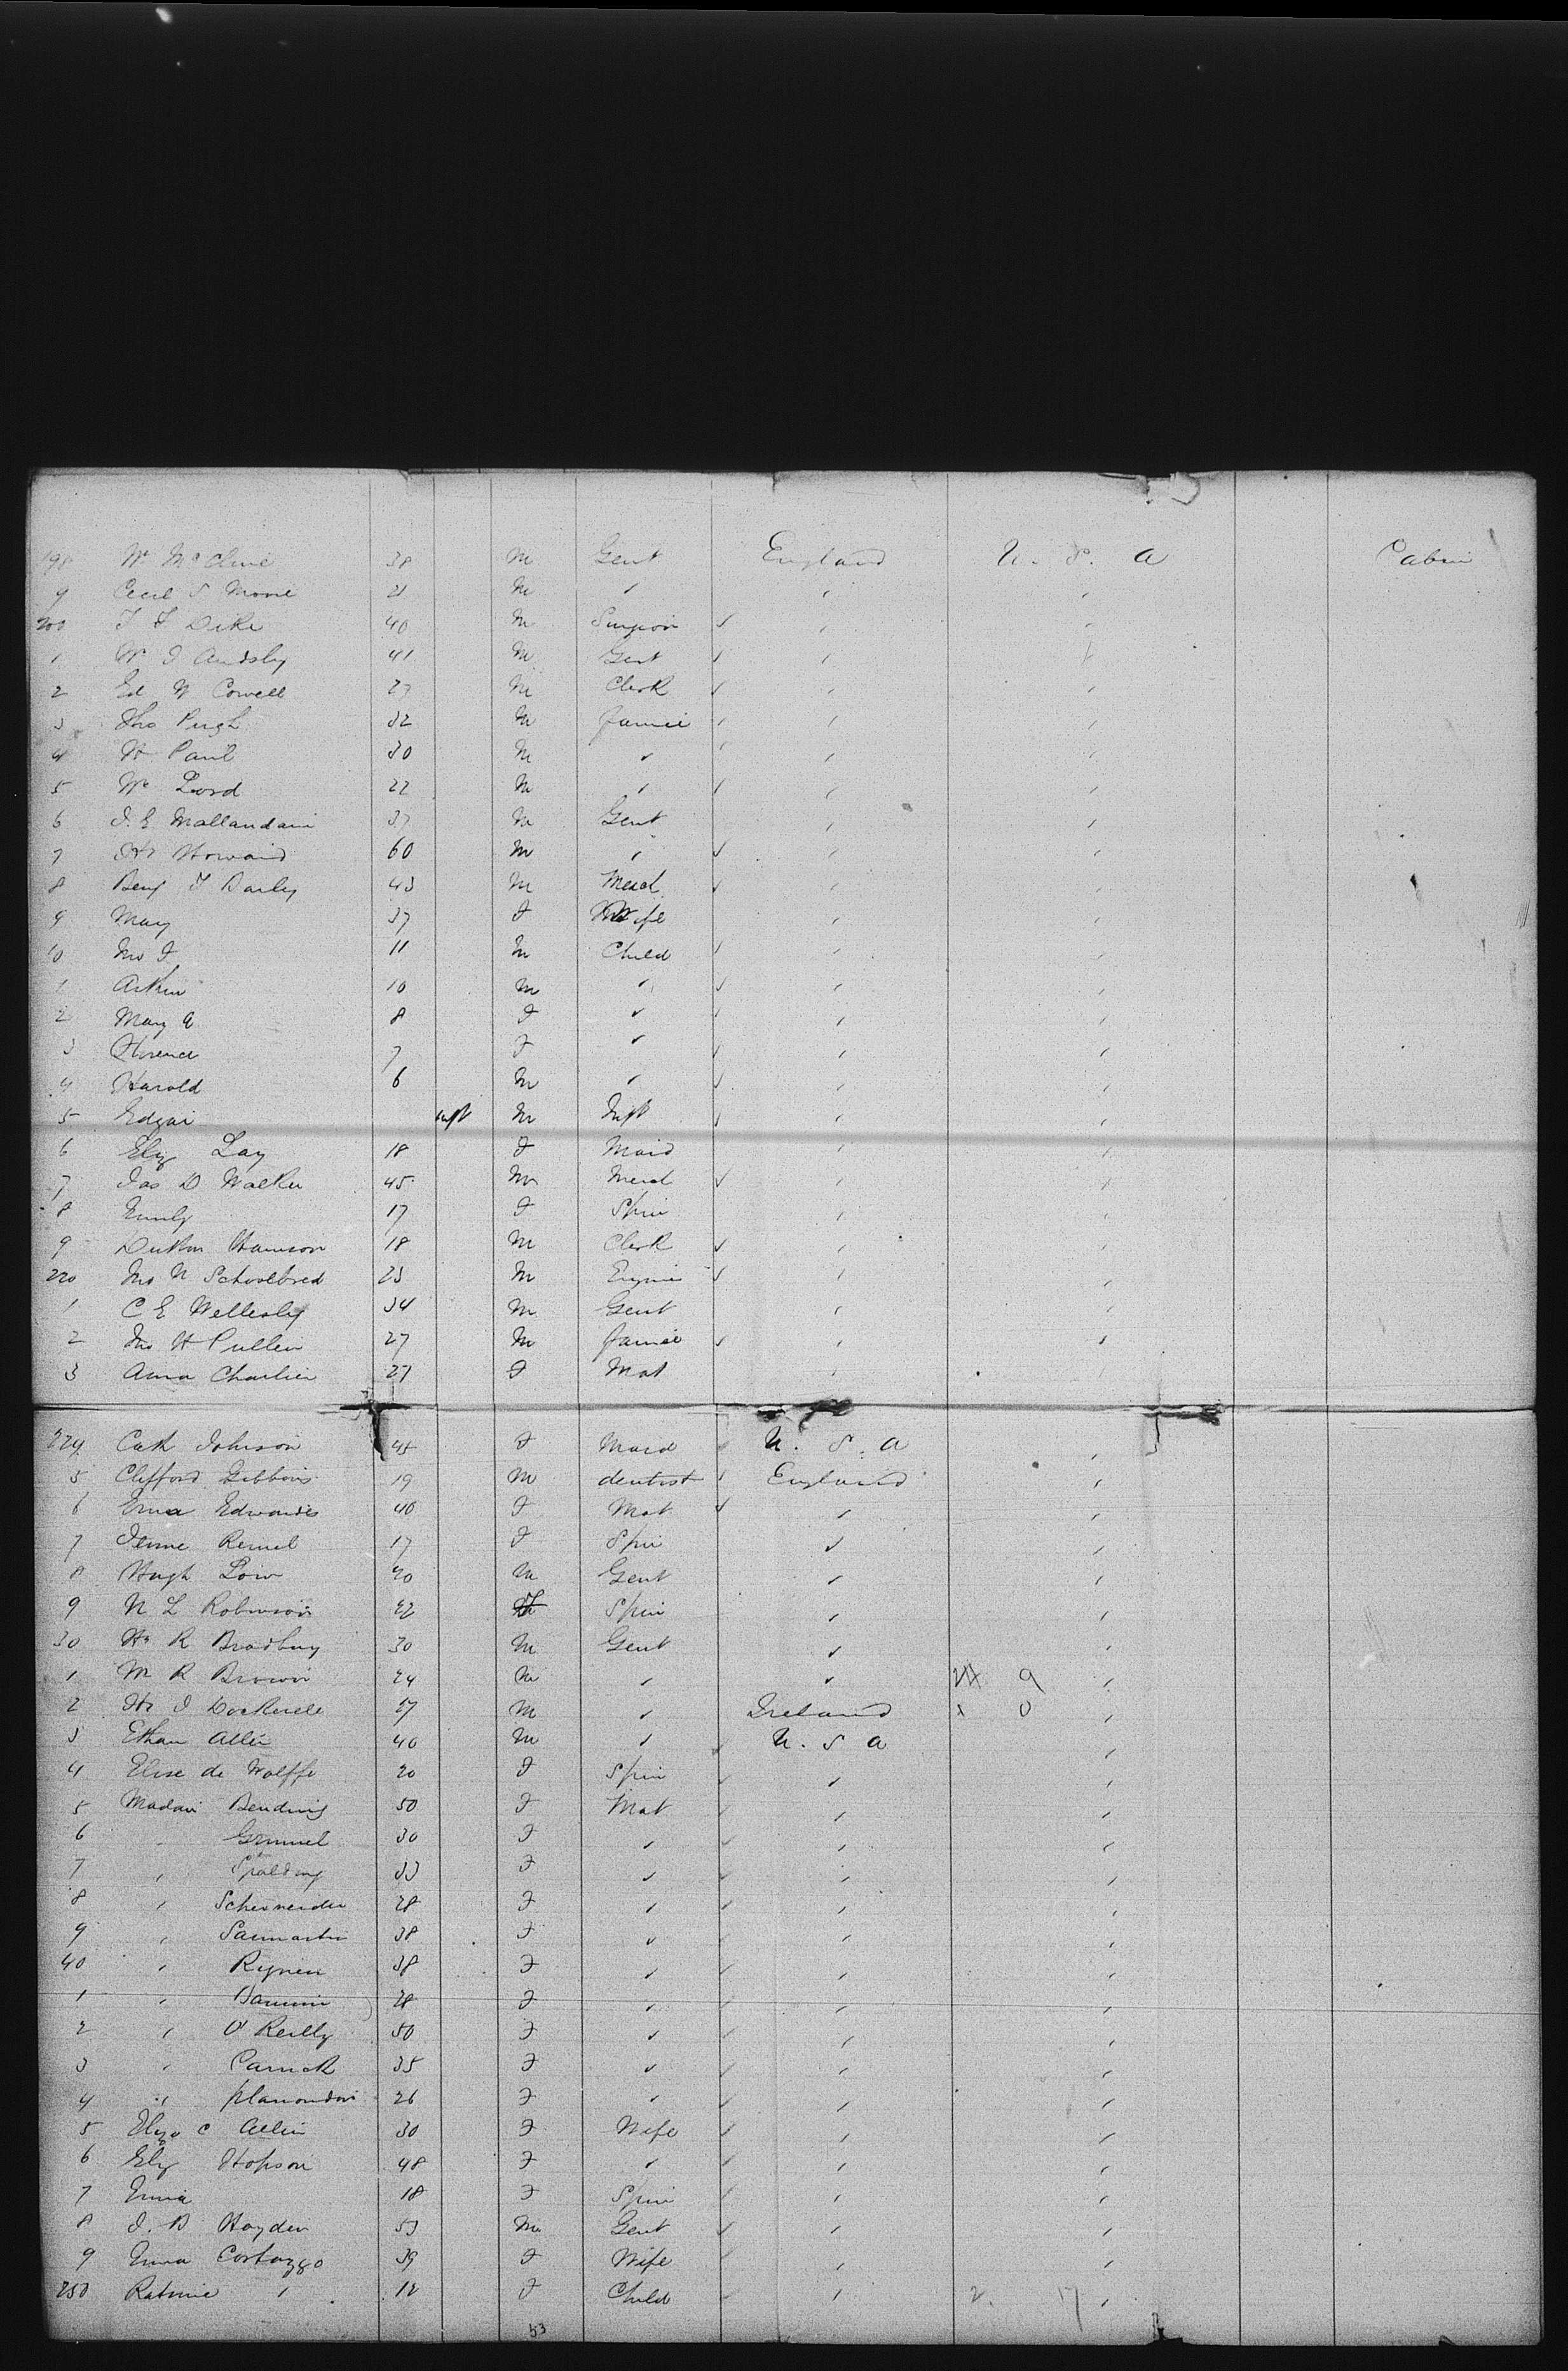 198 Wm McClure 38 M Gent England U. S. A Cabin
9 Cecil S Moore 21 M " " "
200 T F Dike 40 M Surgeon ✓ " "
1 W J Audsley 41 M Gent ✓ " "
2 Ed W Cowell 27 M Clerk ✓ " "
3 Thos Pugh 32 M " "
4 H Paul 30 M " " "
5 Wm Lord 22 M " " "
6 J. E Mallandain 37 M Gent " "
7 Howard 60 M " ✓ " "
8 Benj F Barley 43 M Merch ✓ " "
9 Mary 37 F Wife " "
10 Jno F 11 M Child " "
1 Arthur 10 M " ✓ " "
2 Mary E 8 F " " "
3 Florence 7 F " " "
4 Harold 6 M " ✓ " "
5 Edgar inft M Inft " "
6 Eliz Lay 18 F Maid " "
7 Jas D Walker 45 M Merch ✓ " "
8 Emily 17 F Spin " "
9 Harrison 18 M Clerk ✓ " "
220 Jno N Schoolbred 23 M ✓ " "
1 C E Wellesley 34 M Gent " "
2 Jno H Pullen 27 M ✓ " "
3 Anna Charlier 27 F Mat "
224 Cath Johnson 45 F Maid U. S. A "
5 Clifford Gibbons 19 M dentist England "
6 Edwards 40 F Mat ✓ " "
7 17 F Spin " "
8 Hugh Low 40 M Gent " "
9 N L Robinson 22 F Spin " "
30 R Bradbury 30 M Gent " "
1 M R Brown 24 M " " 9 "
2 J 27 M " Ireland x 0 "
3 Ethan Allen 40 M " U. S A "
4 Elise de Wolffe 20 F Spin " "
5 Madam 50 F Mat " "
6 " Grinnel 30 F " " "
7 " Spalding 33 F " " "
8 " 28 F " " "
9 " 38 F " " "
40 " 38 F " " "
1 " 28 F " " "
2 " O'Reilly 50 F " " "
3 " Carrick 35 F " " "
4 " plamondon 26 F " " "
5 Eliza C Allen 30 F Wife " "
6 Eliz Hopson 48 F " " "
7 18 F Spin " "
8 J. B Hayden 53 M Gent ✓ " "
9 Cortazzo 39 F Wife " "
250 " 12 F Child " 2. 17 "
53